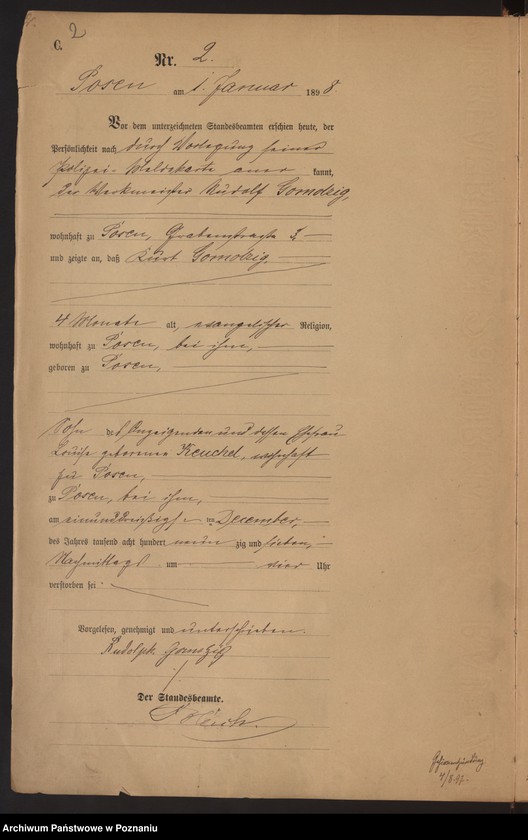 C.
2
Nr. 2.
Posen am 1. Januar 1898
Vor dem unterzeichneten Standesbeamten erschien heute, der
Persönlichkeit nach durch Vorlegung seiner
Polizei-Meldekarte aner kannt,
der Werkmeister Rudolf Gomolzig,
wohnhaft zu Posen, Grabenstrasse
und zeigte an, daß Kurt Gomolzig,
4 Monate alt, evangelischer Religion,
wohnhaft zu Posen, bei ihm,
geboren zu Posen,
Sohn des Anzeigenden und dessen Ehefrau
Louise geborenen Keuchel, wohnhaft
zu Posen,
zu Posen, bei ihm,
am einunddreißigsten Dezember,
des Jahres tausend acht hundert neun zig und sieben,
Nachmittags um vier Uhr
verstorben sei
Vorgelesen, genehmigt und unterschrieben.
Rudolph Gomolzig
Der Standesbeamte.
Archiwum Państwowe w Poznaniu